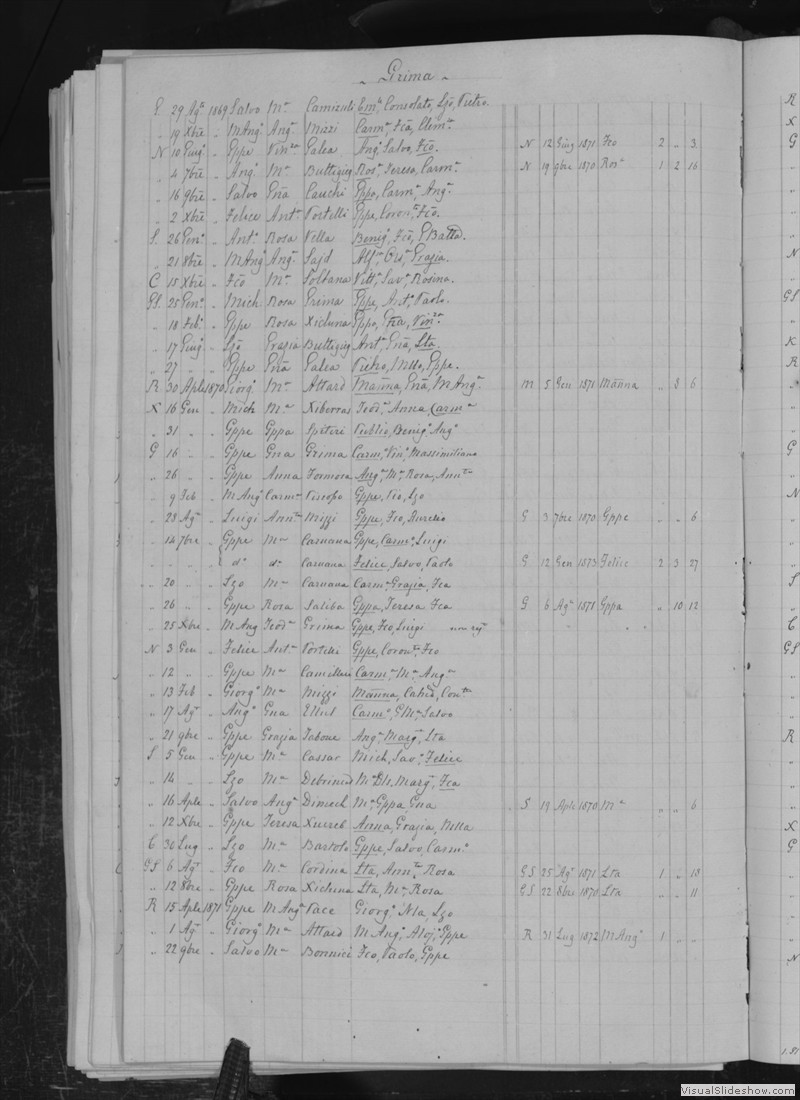 Grima
E 29 Agº 1869 Salvo Mª Camizuli Emª Consolato, Lzo, Pietro.
" 19 Xbre " M Angº Angª Mizzi Carmº, Fca, Clemª
N 10 Giugº " Gppe Vinza Galea Angº Salvo, Fco. N 12 Giug 1871 Fco 2 " 3
" 4 7bre " Angº Mª Buttigieg Rosª, Teresa, Carmª N 19 9bre 1870 Rosª 1 2 16
" 16 9bre " Salvo Gna Cauchi Gppa, Carmª, Angª
" 2 Xbre " Felice Antª Portelli Gppe, Coronª, Fco.
S. 26 Genº " Antº Rosa Vella Benigº, Fco, G Batta.
" 21 8bre " M Angº Angª Sajd Grazia.
C 15 Xbre " Fco Mª Soltana Vittª, Savª, Rosina.
GS 25 Genº " Mich Rosa Grima Gppe, Antº, Paolo.
" 18 Febº " Gppe Rosa Xicluna Gppa, Fca, Vinza
" 17 Giugº " Lzo Grazia Buttigieg Antª, Gna, Lta.
" 27 " " Gppe Gna Galea Pietro, Gppe.
R 30 Aple 1870 Giorgº Mª Attard Manna, Gna, M Angª M 5 Gen 1871 Manna " 3 6
X 16 Gen " Mich Mª Xiberras Teodª, Anna Carmª
" 31 " " Gppe Gppa Spiteri Publio, Benigº Angº
G 16 " " Gppe Gna Grima Carmº, Vinº, Massimiliano
" 26 " " Gppe Anna Formosa Angª, Mª, Rosa, Annta
" 9 Feb " M Angº Carmª Gppe, Pio, Lzo
" 28 Agº " Luigi Annta Mizzi Gppe, Fco, Aurelio G 3 7bre 1870 Gppe " " 6
" 14 7bre " Gppe Mª Caruana Gppe, Carmº, Luigi
" " " " dº dª Caruana Felice, Salvo, Paolo G 12 Gen 1873 Felice 2 3 27
" 20 " " Lzo Mª Caruana Carmª, Grazia, Fca
" 26 " " Gppe Rosa Saliba Gppa, Teresa Fca G 6 Agº 1871 Gppa " 10 12
" 25 Xbre " M Ang Teodª Grima Gppe, Fco, Luigi
N 3 Gen " Felice Antª Portelli Gppe, Coronª, Fco
" 12 " " Gppe Mª Camilleri Carmª, Mª, Angª
" 13 Feb " Giorgº Mª Mizzi Manna, Conta
" 17 Agº " Angº Gna Ellul Carmº, G Mª, Salvo
" 21 9bre " Gppe Grazia Tabone Angª, Margª, Lta
S 5 Gen " Gppe Mª Cassar Mich, Savº, Felice
" 14 " " Lzo Mª Debrincat Margª, Fca
" 16 Aple " Salvo Angª Dimech Mª Gppa Gna S 19 Aple 1870 Mª " " 6
" 12 Xbre " Gppe Teresa Xuereb Anna, Grazia, Nella
C 30 Lug " Lzo Mª Bartolo Gppe, Salvo, Carmº
GS 6 Agº " Fco Mª Cordina Lta, Annta, Rosa GS 25 Agº 1871 Lta 1 " 18
" 12 8bre " Gppe Rosa Xicluna Lta, Mª, Rosa GS 22 8bre 1870 Lta " " 11
R 15 Aple 1871 Gppe M Angª Pace Giorgº Nla, Lzo
" 1 Agº " Giorgº Mª Attard M Angº, Aloj, Gppe R 31 Lug 1872 M Angº 1 " "
" 22 9bre " Salvo Mª Bonnici Fco, Paolo, Gppe
VisualSlideshow.com